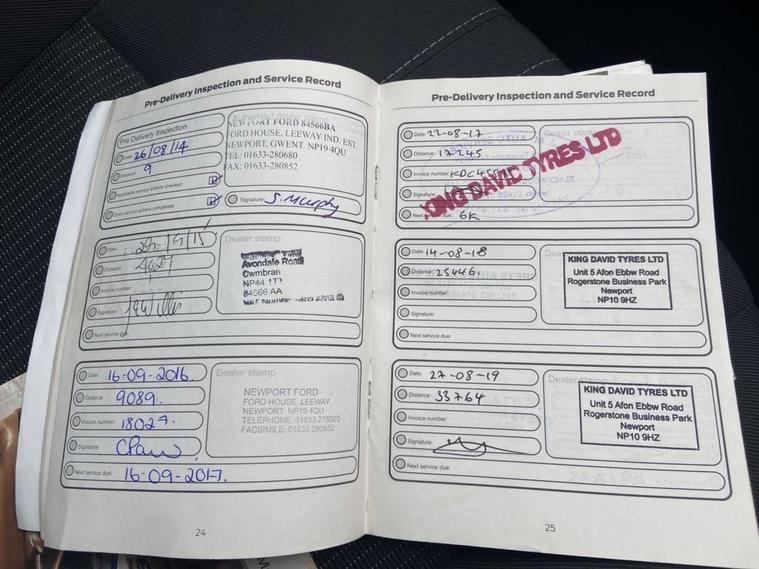 Pre-Delivery Inspection and Service Record
Pre Delivery Inspection
Date: 26/08/14
Distance: 9
Applicable service actions checked:
Open service actions completed:
Authorised dealer stamp
NEWPORT FORD 84566BA
FORD HOUSE, LEEWAY IND. EST.
NEWPORT, GWENT. NP19 4QU
TEL: 01633-280680
FAX: 01633-280852
Signature: S. Murphy
Date:
Distance:
Invoice number:
Signature:
Next service due:
Dealer stamp
Avondale Road
Cwmbran
NP44 1TT
84566 AA
Date: 16-09-2016.
Distance: 9089.
Invoice number: 18027.
Signature:
Next service due: 16-09-2017.
Dealer stamp
NEWPORT FORD
FORD HOUSE, LEEWAY
NEWPORT NP19 4QU
TELEPHONE, 01633 278020
FACSIMILE: 01633 280852
24
Pre-Delivery Inspection and Service Record
Date: 22-08-17
Distance: 17245
Invoice number:
Signature:
Next service due: 6K
Dealer stamp
KING DAVID TYRES LTD
Date: 14-08-18
Distance: 25446
Invoice number:
Signature:
Next service due:
KING DAVID TYRES LTD
Unit 5 Afon Ebbw Road
Rogerstone Business Park
Newport
NP10 9HZ
Date: 27-08-19
Distance: 33764
Invoice number:
Signature:
Next service due:
KING DAVID TYRES LTD
Unit 5 Afon Ebbw Road
Rogerstone Business Park
Newport
NP10 9HZ
25